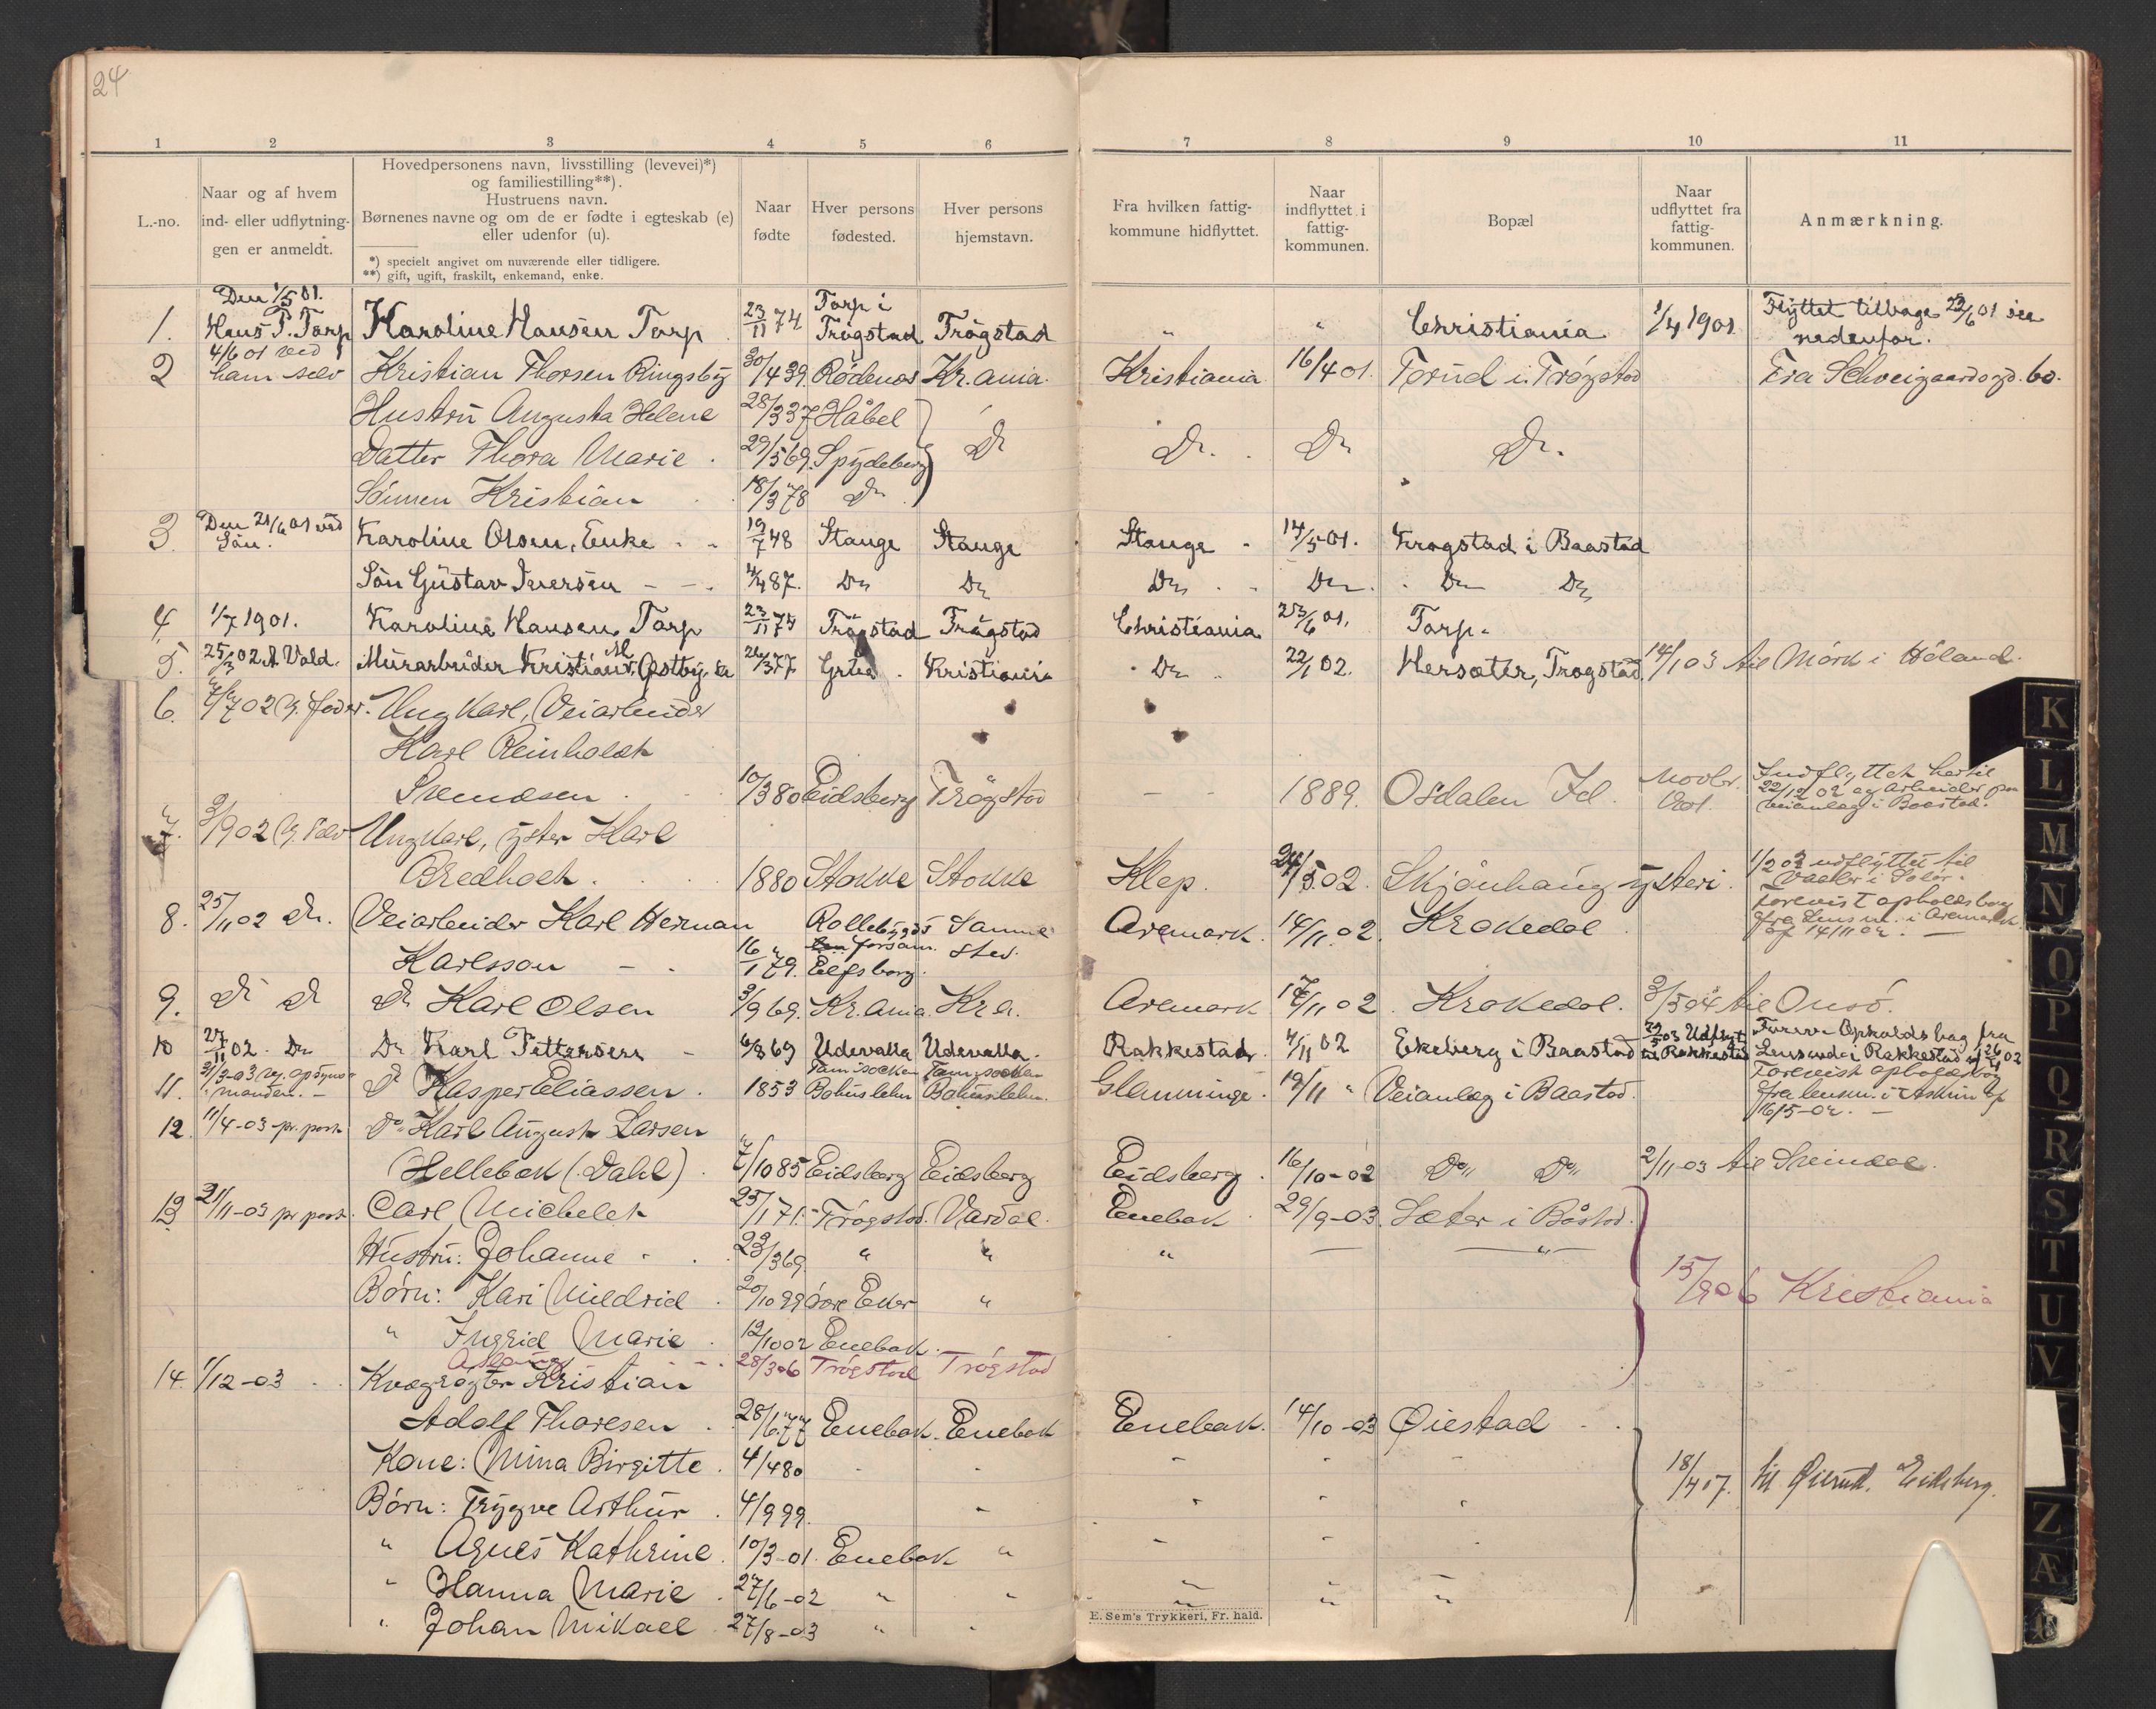 24
1 2 3 4 5 6 7 8 9 10 11
L.-no.
Naar og af hvem
ind- eller udflytnin-
gen er anmeldt.
Hovedpersonens navn, livsstilling (levevei)*)
og familiestilling**).
Hustruens navn.
Børnenes navne og om de er fødte i egteskab (e)
eller udenfor (u).
*) specielt angivet om nuværende eller tidligere.
**) gift, ugift, fraskilt, enkemand, enke.
Naar
fødte
Hver persons
fødested.
Hver persons
hjemstavn.
Fra hvilken fattig-
kommune hidflyttet.
Naar
indflyttet i
fattig-
kommunen.
Bopæl
Naar
udflyttet fra
fattig-
kommunen.
Anmærkning.
Den 1/5 01. Torp i Flyttet tilbage 23/6 01 see
1. Hans P. Torp Karoline Hansen Torp 23/11 74 Trøgstad Trøgstad " " Christiania 1/4 1901 nedenfor.
4/6 01 ved
2 ham selv Kristian Thorsen Ringsby 30/4 39 Rødenes Kr.ania. Kristiania 16/4 01. Torud i Trøgstad Fra Schweigaardsgd. 60.
Hustru Augusta Helene 28/3 37 Håbøl
Datter Thora Marie 29/5 69 Spydeberg Do Do. Do Do.
Sønnen Kristian 18/3 78 Do
Den 21/6 01 ved
3. Søn. Karoline Olsen, Enke 19/7 48 Stange Stange Stange 14/5 01. Krogstad i Baastad
Søn Gustav Iversen 4/4 87. Do Do Do Do Do Do
4 1/7 1901. Karoline Hansen Torp 23/11 74 Trøgstad Trøgstad Christiania 23/6 01. Torp.
5. 25/3 02 A Vold. Murarbeider Kristian M. Østby 26/3 77 Kristiania Do 22/1 02. Hersæter, Trøgstad 14/1 03 til Mørk i Høland.
6. 4/7 02 Ungkarl, Veiarbeider
Karl Reinholdt
Svendsen 10/3 80 Eidsberg Trøgstad — — 1889. Osdalen Id. Novbr. 1901. Indflyttet hertil
22/12 02 og arbeider paa
veianlæg i Baastad.
7. 3/9 02 Ungkarl, yster Karl
Bredholt 1880 Stokke Stokke Klep. 24/5 02. Skjønhaug ysteri. 1/2 03 udflyttet til
Vaaler i Solør.
8. 25/11 02 Do. Veiarbeider Karl Herman Rollebygds Samme Aremark. 14/11 02. Krokedal Forevist opholdsbog
fra Lensm. i Aremark
af 14/11 02.
Karlsson 16/1 79. forsam. sted.
Elfsborg.
9. Do Do Do Karl Olsen 3/9 69. Kr.ania. Kr.a. Aremark 17/11 02 Krokedal. 3/5 04 til Onsø.
10 27/11 02. Do Do Karl Pettersen 6/8 69 Udevalla Udevalla. Rakkestad 4/11 02 Ekeberg i Baastad 03 Udflyt til Rakkestad Opholdsbog fra
Lensmd. i Rakkestad 02
11. 31/3-03 opsyns-
manden. Do Kasper Eliassen 1853 Bohuslehn Bohuslehn. Glemminge 19/11 " Veianlæg i Baastad. Forevist opholdsbog
fra lensm. i Askim af
16/5-02.
12. 11/4-03 pr. post Do Karl August Larsen
Hellebek (Dahl) 7/10 85 Eidsberg Eidsberg Eidsberg 16/10-02 Do Do 2/11-03 til Svindal.
13 21/11-03 pr post. Carl Michelet 23/1 71. Trøgstad. Vardal. Enebak 29/9-03. Sæter i Båstad.
Hustru: Johanne 23/3 69 " " " — "
Børn: Kari Mildrid 20/10 99 øvre Eker " 15/9 06 Kristiania
" Ingrid Marie 12/10 02 Enebak.
28/3 06 Trøgstad Trøgstad
14. 1/12-03 Kvægrøgter Kristian
Adolf Thoresen 28/6 77 Enebak. Enebak Enebak. 14/10-03 Øiestad
Kone: Mina Birgitte 4/4 80 18/4 07. til Øierud. Eidsberg.
Børn: Trygve Arthur 4/9 99.
" Agnes Kathrine 10/3-01. Enebak "
" Hanna Marie 27/6-02 " " " " "
" Johan Mikael 27/8-03 " "
E. Sem's Trykkeri, Fr. hald.
K
L
M
N
O
P
Q
R
S
T
U
V
Z
Æ
Ø